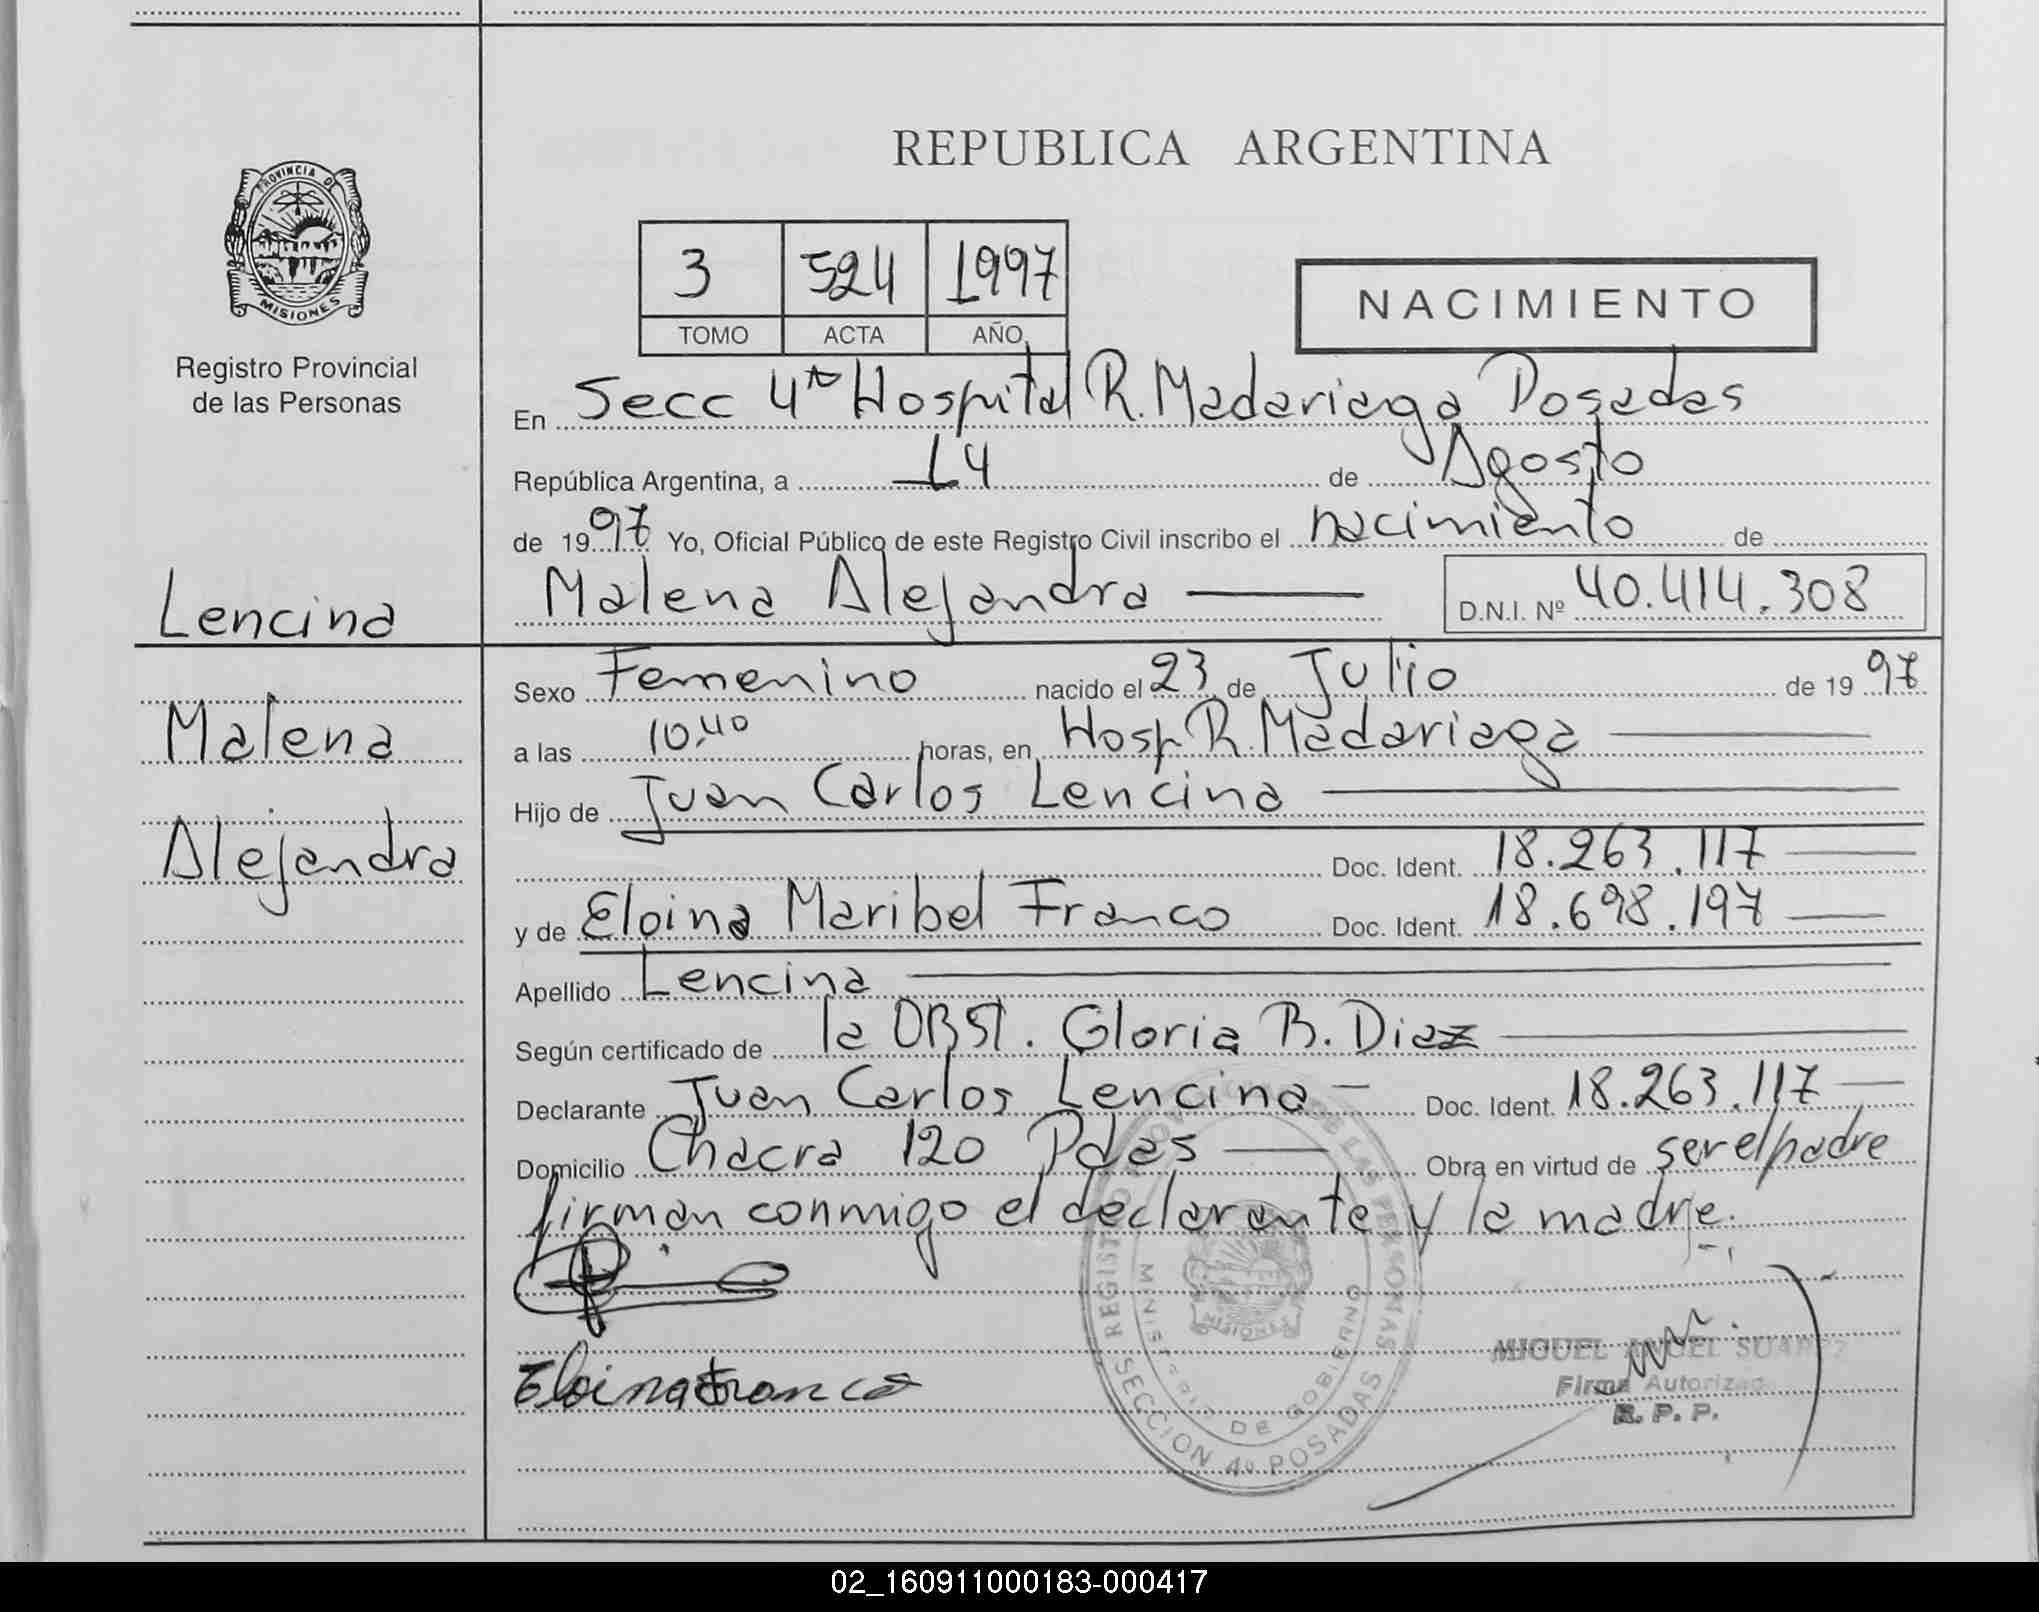 REPUBLICA ARGENTINA
PROVINCIA DE
MISIONES
Registro Provincial
de las Personas
3 524 1997
TOMO ACTA AÑO
NACIMIENTO
En Secc 4ta Hospital R. Madariaga Posadas
República Argentina, a 14 de Agosto
de 1997 Yo, Oficial Público de este Registro Civil inscribo el nacimiento de
Malena Alejandra D.N.I. Nº 40.414.308
Lencina
Malena
Alejandra
Sexo Femenino nacido el 23 de Julio de 1997
a las 10,40 horas, en Hosp R. Madariaga
Hijo de Juan Carlos Lencina
Doc. Ident. 18.263.117
y de Eloina Maribel Franco Doc. Ident. 18.698.197
Apellido Lencina
Según certificado de la OBST. Gloria B. Diaz
Declarante Juan Carlos Lencina - Doc. Ident. 18.263.117
Domicilio Chacra 120 Pdas Obra en virtud de ser el padre
firman conmigo el declarante y la madre.
Eloina Franco
REGISTRO PROVINCIAL DE LAS PERSONAS
MINISTERIO DE GOBIERNO
MISIONES
SECCION 4º POSADAS
MIGUEL ANGEL SUAREZ
Firma Autorizada
R. P. P.
02_160911000183-000417